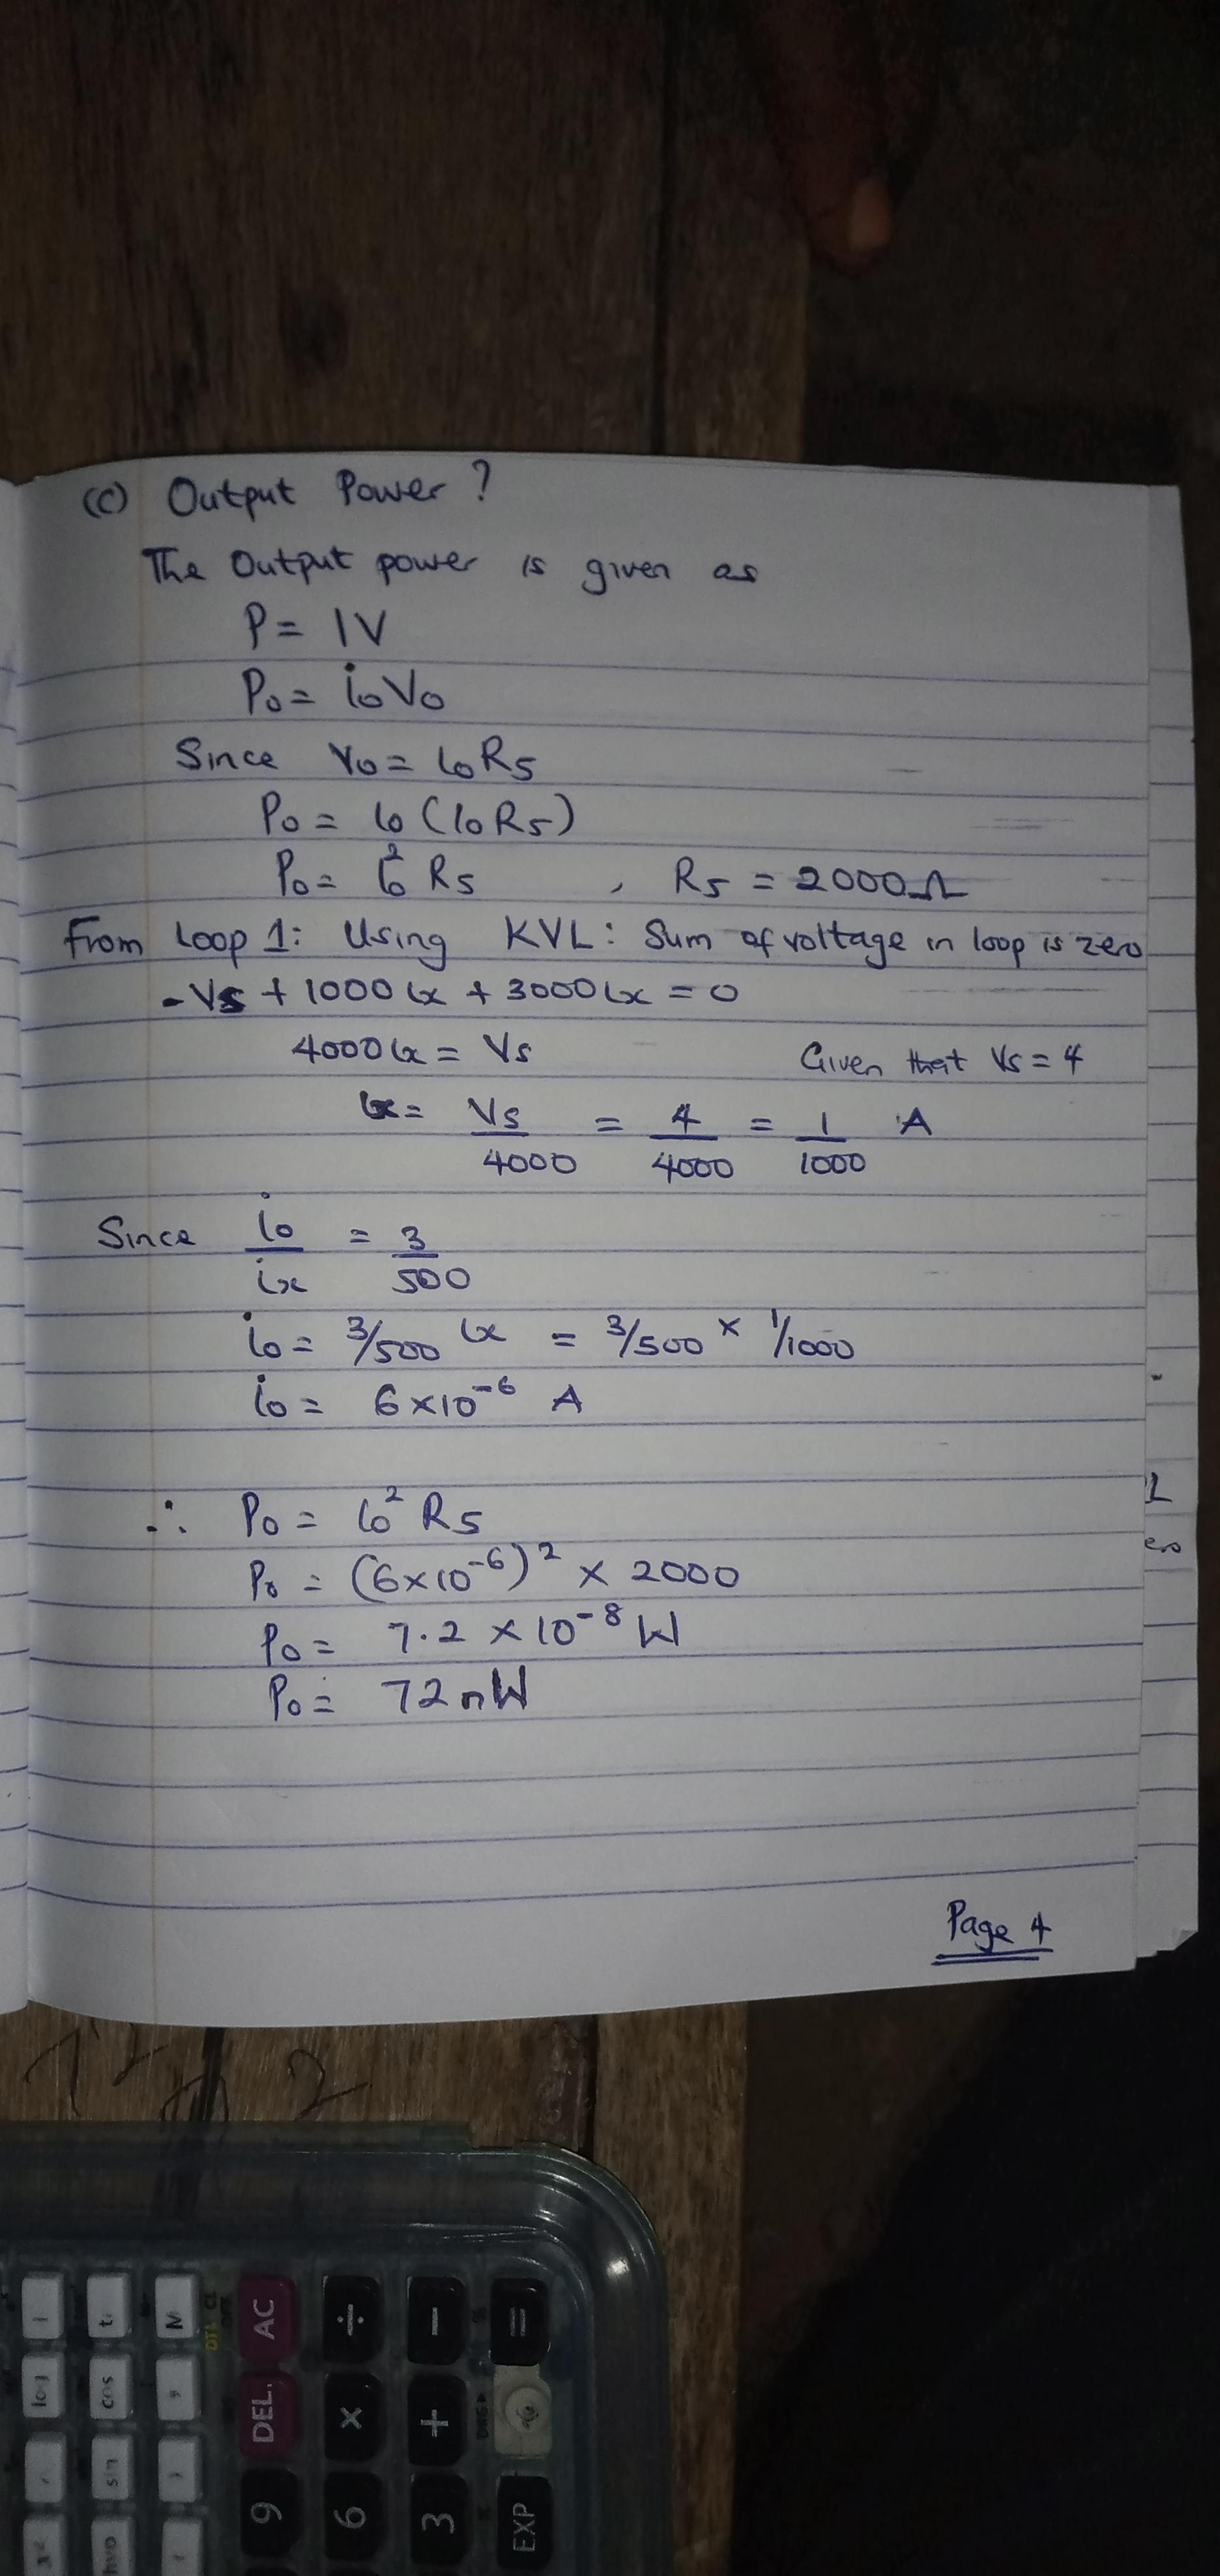 (c) Output Power ?
The Output power is given as
P = IV
Po = ioVo
Since Vo = ioR5
Po = io (ioR5)
Po = io² R5 , R5 = 2000Ω
From Loop 1: Using KVL: Sum of voltage in loop is zero
-Vs + 1000ix + 3000ix = 0
4000ix = Vs Given that Vs = 4
ix = Vs/4000 = 4/4000 = 1/1000 A
Since io/ix = 3/500
io = 3/500 ix = 3/500 × 1/1000
io = 6×10⁻⁶ A
∴ Po = io² R5
Po = (6×10⁻⁶)² × 2000
Po = 7.2 × 10⁻⁸ W
Po = 72nW
Page 4
AC ÷ - =
DEL × +
9 6 3 EXP
log cos
sin